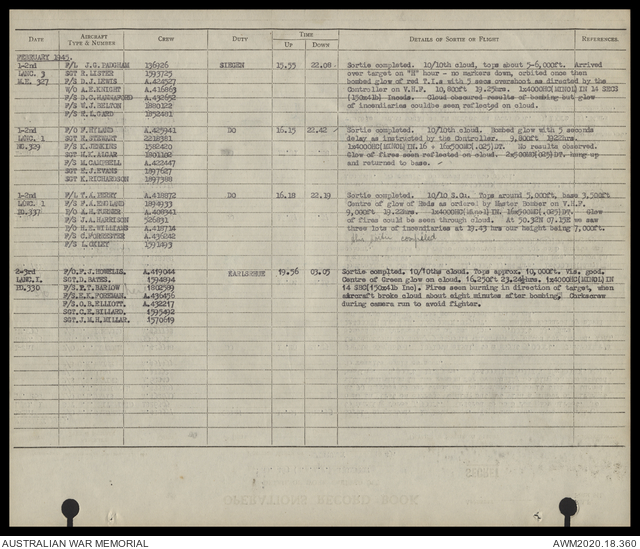 DATE AIRCRAFT TYPE & NUMBER CREW DUTY TIME UP DOWN DETAILS OF SORTIE OR FLIGHT REFERENCES.
FEBRUARY 1945.
1-2nd F/L J.G. 136926 SIEGEN 15.55 22.08 Sortie completed. 10/10th cloud, tops about 5-6,000ft. Arrived
LANC. 3 SGT R.LISTER 1593725 over target on "H" hour - no markers down, orbited once then
M.E. 327 F/S D.J.LEWIS A.424527 bombed glow of red T.I.s with 5 secs overshoot as directed by the
W/O A.E.KNIGHT A.416863 Controller on V.H.F. 10,800ft 19.25hrs. 1x4000HC(MINOL)IN 14 SBCS
F/S D.C.HANNAFORD A.432652 (150x4lb) Incds. Cloud obscured results of bombing but glow
F/S W.J.BELTON 1880122 of incendiaries couldbe seen reflected on cloud.
F/S R.L.CARD 1852481
1-2nd F/O F.HYLAND A.425941 DO 16.15 22.42 Sortie completed. 10/10th cloud. Bombed glow with 5 seconds
LANC. 1 SGT R.STEWART 2218381 delay as instructed by the Controller. 9,800ft 1922hrs.
ND.329 F/S K.JENKINS 1582420 1x4000HC(MINOL)IN.16 + 16x500MC(.025)DT. No results observed.
SGT H.K.ALGAR 1801102 Glow of fires seen reflected on cloud. 2x500MC(025)DT. hung up
F/S M.CAMPBELL A.422447 and returned to base.
SGT R.J.EVANS 1897627
SGT K.RICHARDSON 1897388
1-2nd F/L T.A. A.418872 DO 16.18 22.19 Sortie completed. 10/10 S.Cu. Tops around 5,000ft, base 3,500ft
LANC. 1 F/S F.A.ENGLAND 1894933 Centre of glow of Reds as ordered by Master Bomber on V.H.F.
ND.337 F/O A.H.TURNER A.408341 9,000ft 19.22hrs. 1x4000HC(Minol) IN. 16x500MC(.025)DT. Glow
F/S J.A.HARRISON 526831 of fires could be seen through cloud. At 50.32N 07.15E we saw
F/O H.E.WILLIAMS A.418714 three lots of incendiaries at 19.43 hrs our height being 7,000ft.
F/S C.FORRESTER A.436242 completed
F/S L.OXLEY 1591493
2-3rd F/O.F.J.HOWELLS. A.419044 KARLSRUHE 19.56 03.05 Sortie complted. 10/10ths cloud. Tops approx. 10,000ft. Vis. good.
LANC.I. SGT.D.BATES. 1594894 Centre of Green glow on cloud. 16,250ft 23.24½hrs. 1x4000HC(MINOL)IN
ND.330 F/S.P.T.BARLOW 1802589 14 SBC(150x4lb Inc). Fires seen burning in direction of target, when
F/S.E.K.FOREMAN. A.436456 aircraft broke cloud about eight minutes after bombing. Corkscrew
F/S.O.B.ELLIOTT. A.432217 during camera run to avoid fighter.
SGT.C.E.MILLARD. 1595492
SGT.J.M.H.MILLAR. 1570619
AUSTRALIAN WAR MEMORIAL AWM2020.18.360